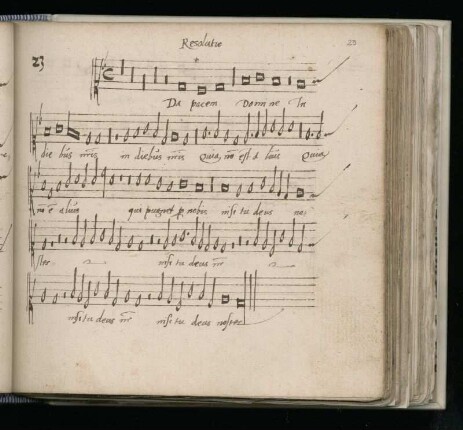 Resolutio
23
23
Da pacem Domine In
diebus nris in diebus nris Quia no est alius Quia
no e alius qui pugnet p nobis nisi tu deus nos
ster nisi tu deus nr
nisi tu deus nr nisi tu deus noster